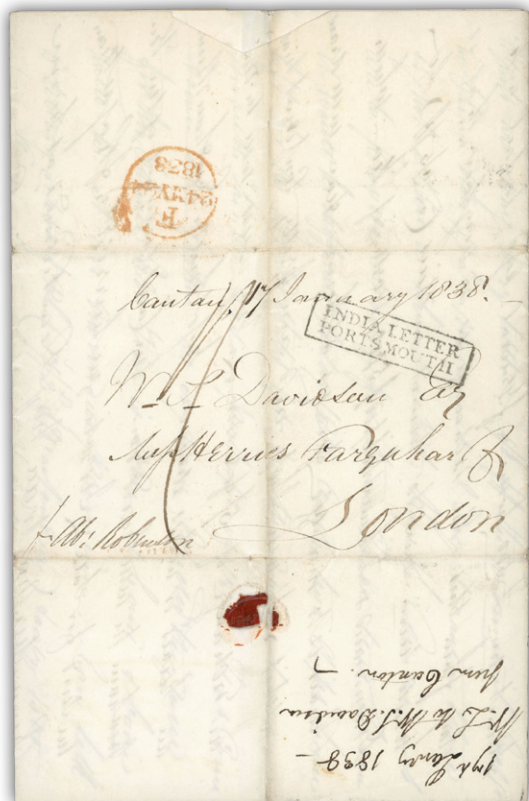 F
24 MY
1838
Canton, 17 January 1838.
INDIA LETTER
PORTSMOUTH
W. S. Davidson
Herries Farquhar &
London
Robertson
17th Jany 1838 –
to W. S. Davidson
from Canton.